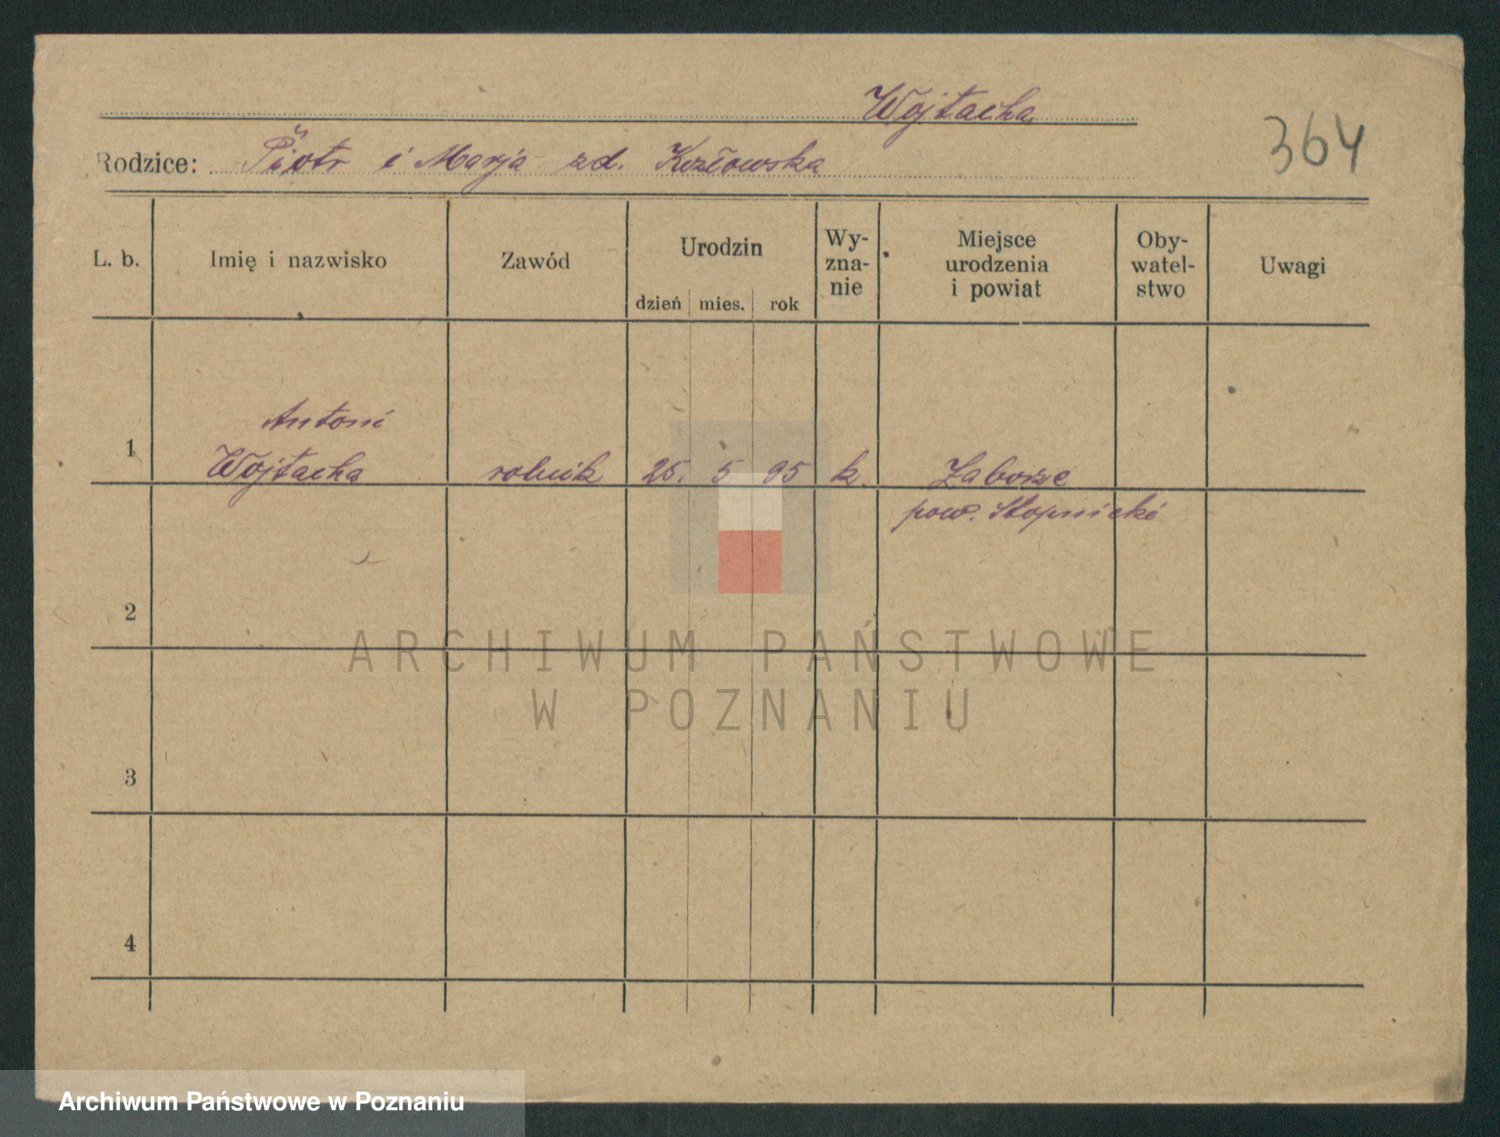 Wojtacha
364
Rodzice: Piotr i Marja zd. Kozłowska
L. b.
Imię i nazwisko
Zawód
Urodzin
dzień mies. rok
Wy-
zna-
nie
Miejsce
urodzenia
i powiat
Oby-
watel-
stwo
Uwagi
Antoni
1 Wojtacha rolnik 25. 5 95 k. Zaborze
pow. Stopnicki
2
3
4
ARCHIWUM PAŃSTWOWE
W POZNANIU
Archiwum Państwowe w Poznaniu